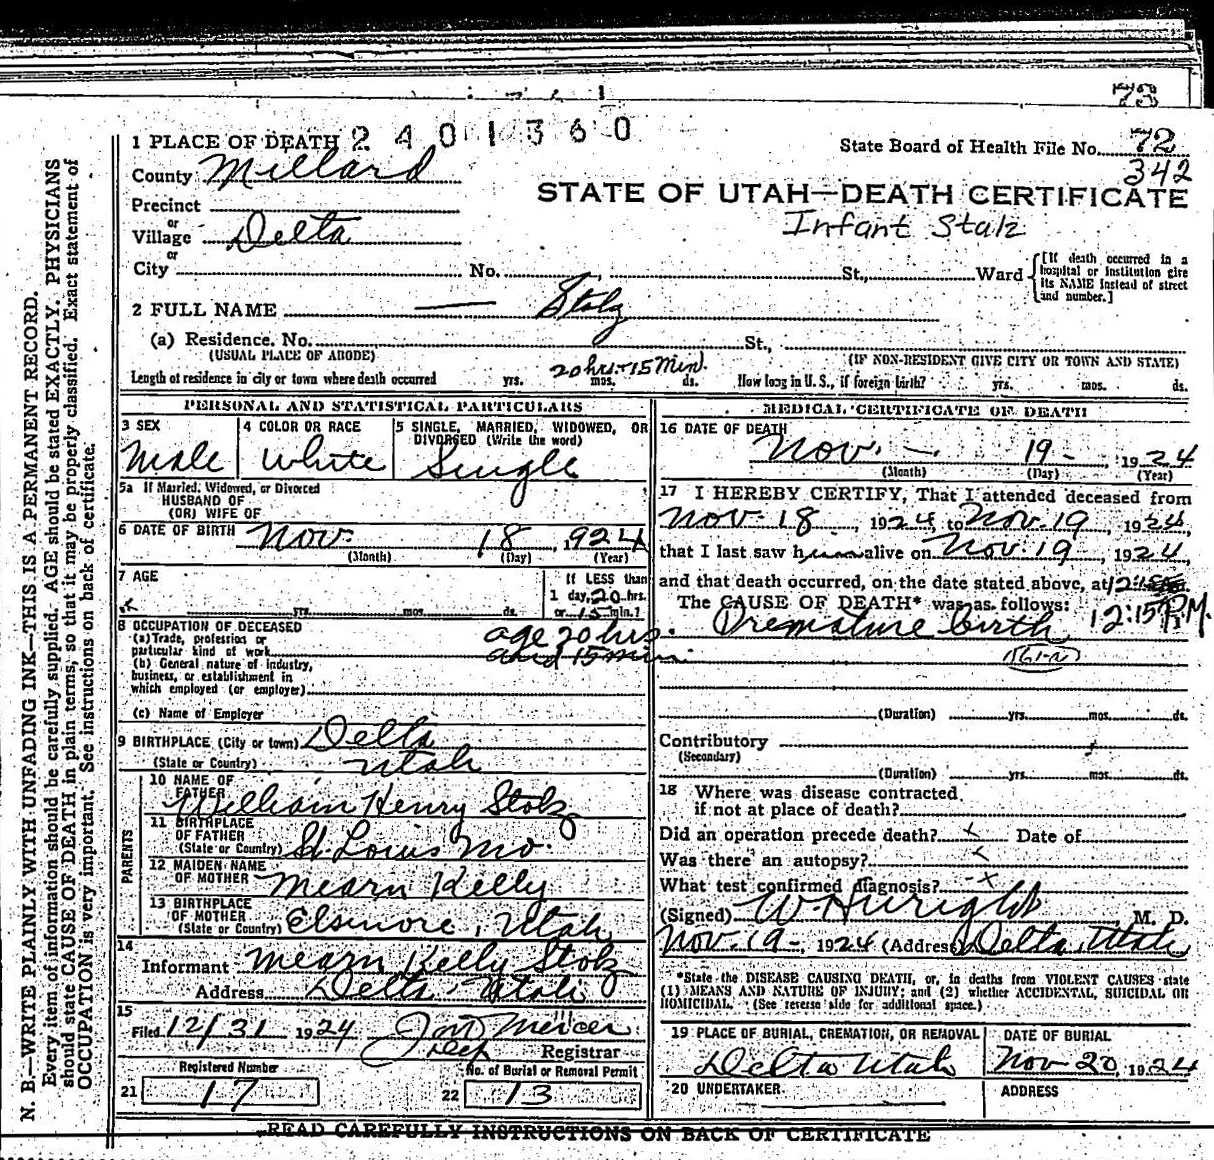 73
1 PLACE OF DEATH 2 4 0 1 3 6 0
State Board of Health File No. 72
342
County Millard
STATE OF UTAH—DEATH CERTIFICATE
Precinct
or
Village Delta
Infant Stalz
or
City No. St., Ward
[If death occurred in a hospital or institution give its NAME instead of street and number.]
2 FULL NAME — Stolz
(a) Residence. No. St.,
(USUAL PLACE OF ABODE) (IF NON-RESIDENT GIVE CITY OR TOWN AND STATE)
Length of residence in city or town where death occurred yrs. mos. ds. 20 hrs. 15 Min. How long in U. S., if foreign birth? yrs. mos. ds.
PERSONAL AND STATISTICAL PARTICULARS
3 SEX
Male
4 COLOR OR RACE
White
5 SINGLE, MARRIED, WIDOWED, OR DIVORSED (Write the word)
Single
5a If Married, Widowed, or Divorced
HUSBAND OF
(OR) WIFE OF
6 DATE OF BIRTH Nov. 18, 1924
(Month) (Day) (Year)
7 AGE
yrs. mos. ds.
If LESS than
1 day, 20 hrs.
or 15 min.?
8 OCCUPATION OF DECEASED
(a) Trade, profession or
particular kind of work
age 20 hrs.
and 15 min.
(b) General nature of industry,
business, or establishment in
which employed (or employer)
(c) Name of Employer
9 BIRTHPLACE (City or town) Delta
(State or Country) Utah
PARENTS
10 NAME OF
FATHER
William Henry Stolz
11 BIRTHPLACE
OF FATHER
(State or Country) St. Louis Mo.
12 MAIDEN NAME
OF MOTHER Mearn Kelly
13 BIRTHPLACE
OF MOTHER
(State or Country) Elsinore, Utah
14
Informant Mearn Kelly Stolz
Address Delta, Utah
15
Filed 12/31 1924 Mercer
Dep Registrar
Registered Number
21 17
No. of Burial or Removal Permit
22 13
MEDICAL CERTIFICATE OF DEATH
16 DATE OF DEATH
Nov. — 19 - , 1924
(Month) (Day) (Year)
17 I HEREBY CERTIFY, That I attended deceased from
Nov. 18, 1924 to Nov. 19, 1924,
that I last saw him alive on Nov. 19, 1924,
and that death occurred, on the date stated above, at 12:15
The CAUSE OF DEATH* was as follows: 12:15 P.M.
Premature birth
(Duration) yrs. mos. ds.
Contributory
(Secondary)
(Duration) yrs. mos. ds.
18 Where was disease contracted
if not at place of death?
Did an operation precede death? x Date of
Was there an autopsy? x
What test confirmed diagnosis? -x
(Signed) , M. D.
Nov. 19-, 1924 (Address) Delta, Utah
*State the DISEASE CAUSING DEATH, or, in deaths from VIOLENT CAUSES state
(1) MEANS AND NATURE OF INJURY; and (2) whether ACCIDENTAL, SUICIDAL OR
HOMICIDAL. (See reverse side for additional space.)
19 PLACE OF BURIAL, CREMATION, OR REMOVAL
Delta Utah
DATE OF BURIAL
Nov 20, 1924
20 UNDERTAKER
ADDRESS
READ CAREFULLY INSTRUCTIONS ON BACK OF CERTIFICATE
N. B.—WRITE PLAINLY WITH UNFADING INK—THIS IS A PERMANENT RECORD.
Every item of information should be carefully supplied. AGE should be stated EXACTLY. PHYSICIANS
should state CAUSE OF DEATH in plain terms, so that it may be properly classified. Exact statement of
OCCUPATION is very important. See instructions on back of certificate.